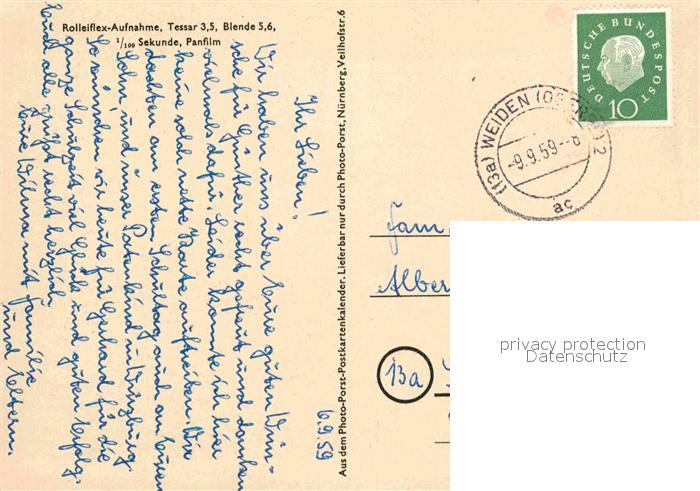 Rolleiflex-Aufnahme, Tessar 3,5, Blende 5,6,
1/100 Sekunde, Panfilm
6.9.59
Ihr Lieben!
Wir haben uns über Eure guten Wün-
sche für Günther sehr gefreut und danken
vielmals dafür. Leider konnte ich hier
keine solch nette Karte auftreiben. Wir
dachten am ersten Schultag auch an Euren
Sohn und unser Patenkind in Würzburg.
So wünschen wir heute für Gerhard für die
ganze Schulzeit viel Glück und guten Erfolg.
Euch alle grüßt recht herzlich
Eure Wilma mit Familie
und Eltern.
Aus dem Photo-Porst-Postkartenkalender. Lieferbar nur durch Photo-Porst, Nürnberg, Veilhofstr. 6
DEUTSCHE BUNDESPOST
10
(13a) WEIDEN 2
-9.9.59--8
ac
Fam.
Alber
13a
privacy protection
Datenschutz